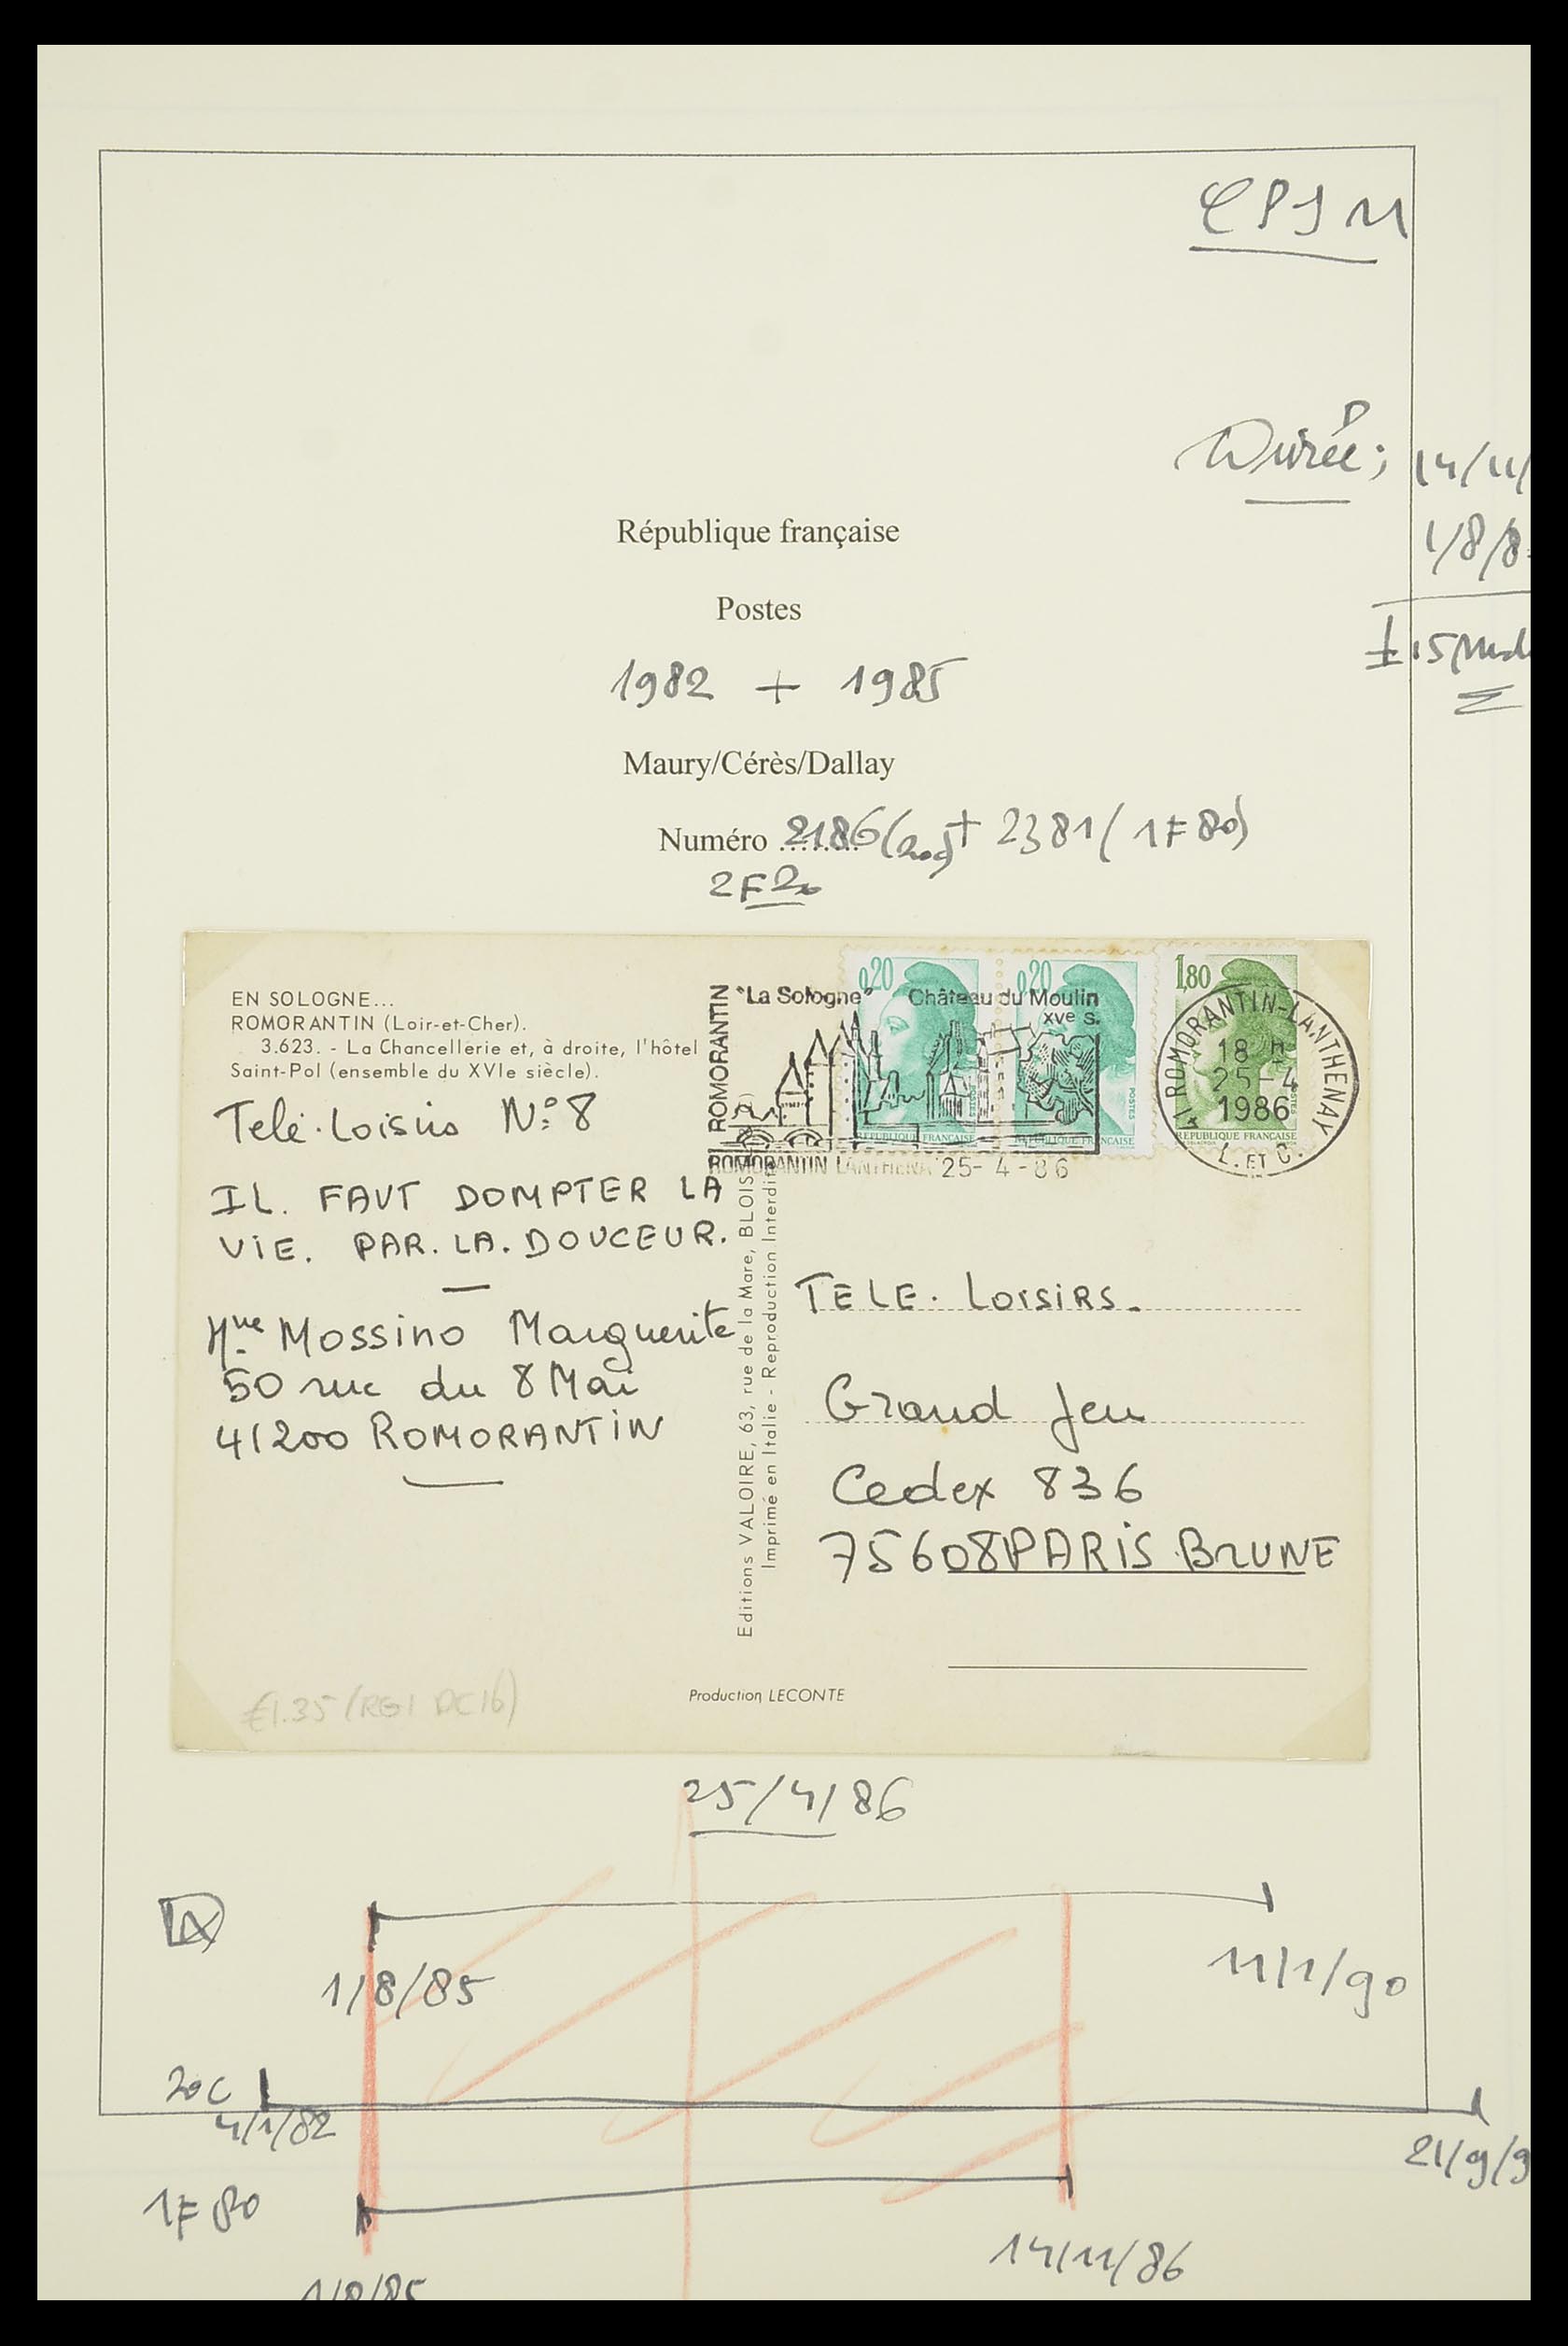 CPSM
Durée ;
14/11/
1/8/8
± 15 mois
République française
Postes
1982 + 1985
Maury/Cérès/Dallay
Numéro ........ 2186 (20c) + 2381 (1F80)
2F20
EN SOLOGNE...
ROMORANTIN (Loir-et-Cher).
3.623. - La Chancellerie et, à droite, l'hôtel
Saint-Pol (ensemble du XVIe siècle).
ROMORANTIN
"La Sologne" Château du Moulin
XVe S.
ROMORANTIN LANTHENA 25-4-86
0,20
RÉPUBLIQUE FRANÇAISE
0,20
POSTES
RÉPUBLIQUE FRANÇAISE
1,80
POSTES
RÉPUBLIQUE FRANÇAISE
41 ROMORANTIN-LANTHENAY
18 H
25-4
1986
L. ET C.
Télé-Loisirs N° 8
IL. FAUT DOMPTER LA
VIE. PAR. LA. DOUCEUR.
Mme Mossino Marguerite
50 rue du 8 Mai
41200 ROMORANTIN
Editions VALOIRE, 63, rue de la Mare, BLOIS
Imprimé en Italie - Reproduction Interdite
TELE. LOISIRS.
Grand Jeu
Cedex 836
75608 PARIS BRUNE
Production LECONTE
€1.35 (RG1 DC16)
25/4/86
1/8/85
11/1/90
20c
4/1/82
21/9/9
1F80
14/11/86
1/8/85